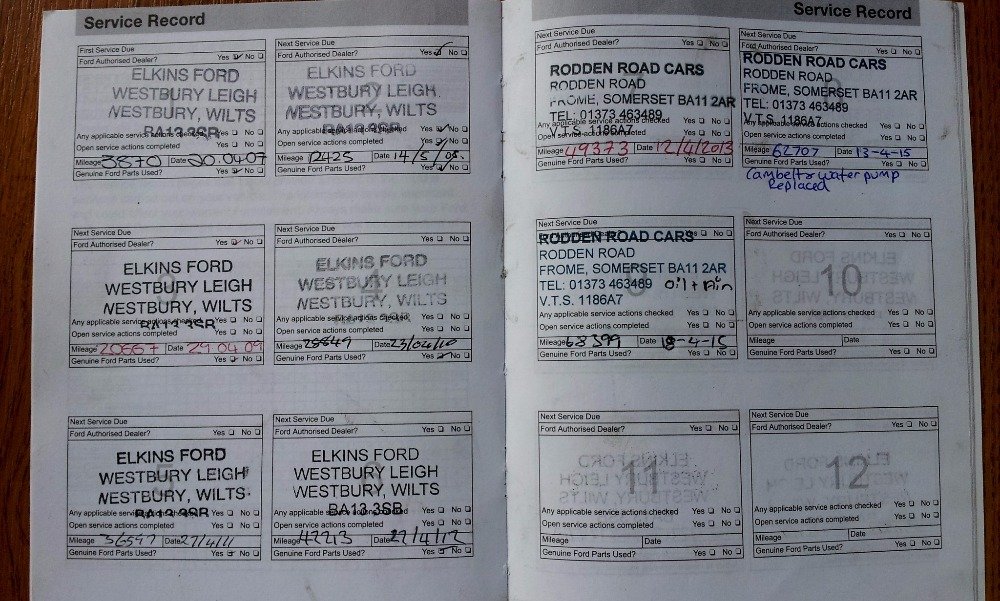 Service Record
First Service Due
Ford Authorised Dealer? Yes No
ELKINS FORD
WESTBURY LEIGH
WESTBURY, WILTS
BA13 3SR
Any applicable service actions checked Yes No
Open service actions completed Yes No
Mileage 3870 Date 20.04.07
Genuine Ford Parts Used? Yes No
Next Service Due
Ford Authorised Dealer? Yes No
ELKINS FORD
WESTBURY LEIGH
WESTBURY, WILTS
BA13 3SR
Any applicable service actions checked Yes No
Open service actions completed Yes No
Mileage 12425 Date 14/5/08
Genuine Ford Parts Used? Yes No
Next Service Due
Ford Authorised Dealer? Yes No
ELKINS FORD
WESTBURY LEIGH
WESTBURY, WILTS
BA13 3SR
Any applicable service actions checked Yes No
Open service actions completed Yes No
Mileage 20667 Date 29.04.09
Genuine Ford Parts Used? Yes No
Next Service Due
Ford Authorised Dealer? Yes No
ELKINS FORD
WESTBURY LEIGH
WESTBURY, WILTS
Any applicable service actions checked Yes No
Open service actions completed Yes No
Mileage 28849 Date 23/04/10
Genuine Ford Parts Used? Yes No
Next Service Due
Ford Authorised Dealer? Yes No
ELKINS FORD
WESTBURY LEIGH
WESTBURY, WILTS
BA13 3SR
Any applicable service actions checked Yes No
Open service actions completed Yes No
Mileage 36597 Date 27/4/11
Genuine Ford Parts Used? Yes No
Next Service Due
Ford Authorised Dealer? Yes No
ELKINS FORD
WESTBURY LEIGH
WESTBURY, WILTS
BA13 3SB
Any applicable service actions checked Yes No
Open service actions completed Yes No
Mileage 42213 Date 27/4/12
Genuine Ford Parts Used? Yes No
Service Record
Next Service Due
Ford Authorised Dealer? Yes No
RODDEN ROAD CARS
RODDEN ROAD
FROME, SOMERSET BA11 2AR
TEL: 01373 463489
V.T.S. 1186A7
Any applicable service actions checked Yes No
Open service actions completed Yes No
Mileage 49373 Date 12/4/2013
Genuine Ford Parts Used? Yes No
Next Service Due
Ford Authorised Dealer? Yes No
RODDEN ROAD CARS
RODDEN ROAD
FROME, SOMERSET BA11 2AR
TEL: 01373 463489
V.T.S. 1186A7
Any applicable service actions checked Yes No
Open service actions completed Yes No
Mileage 62707 Date 13-4-15
Genuine Ford Parts Used? Yes No
Cambelt & water pump
Replaced
Next Service Due
RODDEN ROAD CARS Yes No
RODDEN ROAD
FROME, SOMERSET BA11 2AR
TEL: 01373 463489 oil +
V.T.S. 1186A7
Any applicable service actions checked Yes No
Open service actions completed Yes No
Mileage 68399 Date
Genuine Ford Parts Used? Yes No
Next Service Due
Ford Authorised Dealer? Yes No
10
Any applicable service actions checked Yes No
Open service actions completed Yes No
Mileage Date
Genuine Ford Parts Used? Yes No
Next Service Due
Ford Authorised Dealer? Yes No
11
Any applicable service actions checked Yes No
Open service actions completed Yes No
Mileage Date
Genuine Ford Parts Used? Yes No
Next Service Due
Ford Authorised Dealer? Yes No
12
Any applicable service actions checked Yes No
Open service actions completed Yes No
Mileage Date
Genuine Ford Parts Used? Yes No